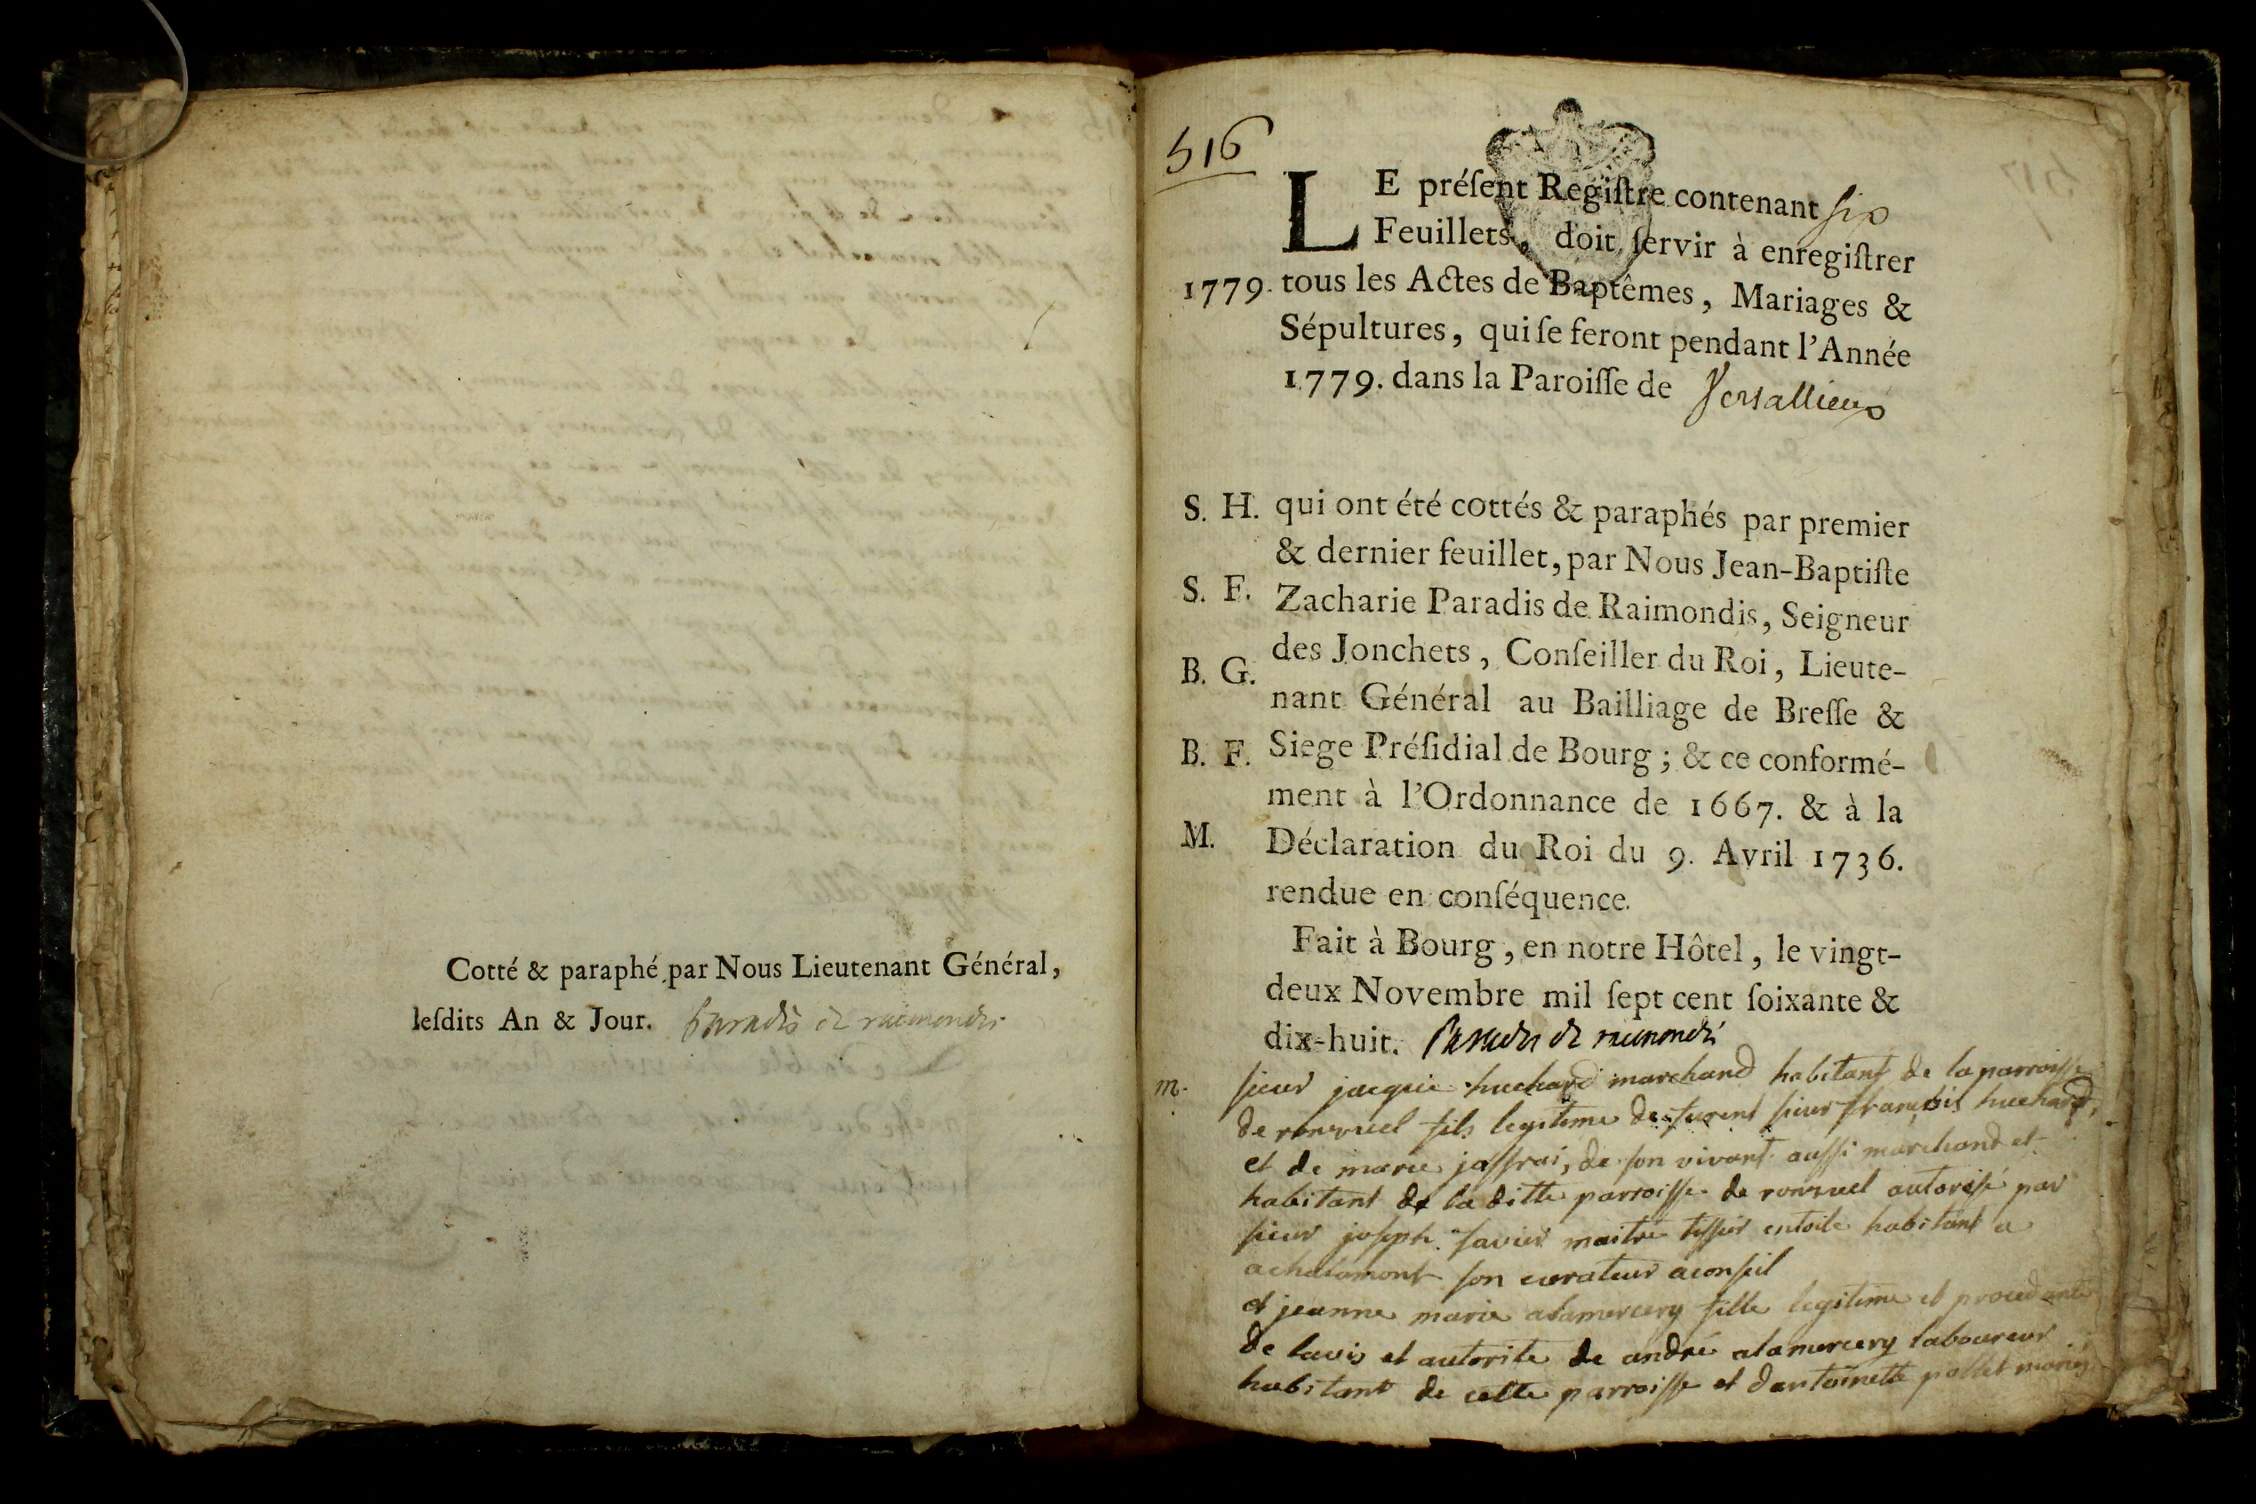 Cotté & paraphé par Nous Lieutenant Général,
leſdits An & Jour. Paradis de raimondis
516
LE préſent Regiſtre contenant six
Feuillets, doit ſervir à enregiſtrer
1779. tous les Actes de Baptêmes, Mariages &
Sépultures, qui ſe feront pendant l'Année
1779. dans la Paroiſſe de Versallieux
S. H. qui ont été cottés & paraphés par premier
& dernier feuillet, par Nous Jean-Baptiſte
S. F. Zacharie Paradis de Raimondis, Seigneur
des Jonchets, Conſeiller du Roi, Lieute-
B. G. nant Général au Bailliage de Breſſe &
B. F. Siege Préſidial de Bourg; & ce conformé-
ment à l'Ordonnance de 1667. & à la
M. Déclaration du Roi du 9. Avril 1736.
rendue en conſéquence.
Fait à Bourg, en notre Hôtel, le vingt-
deux Novembre mil ſept cent ſoixante &
dix-huit. Paradis de raimondis
m. sieur jacque huchard marchand habitant de la parroisse
de ronzuel fils legitime de furent sieur françois huchard,
et de marie jassrai, de son vivant aussi marchand et
habitant de la ditte parroisse de ronzuel autorisé par
sieur joseph savier maitre tissier entoile habitant a
achalamont son curateur aconseil
et jeanne marie alamercery fille legitime et procedante
de lavis et autorite de andré alamercery laboureur
habitant de cette parroisse et dantoinette pollet mariés